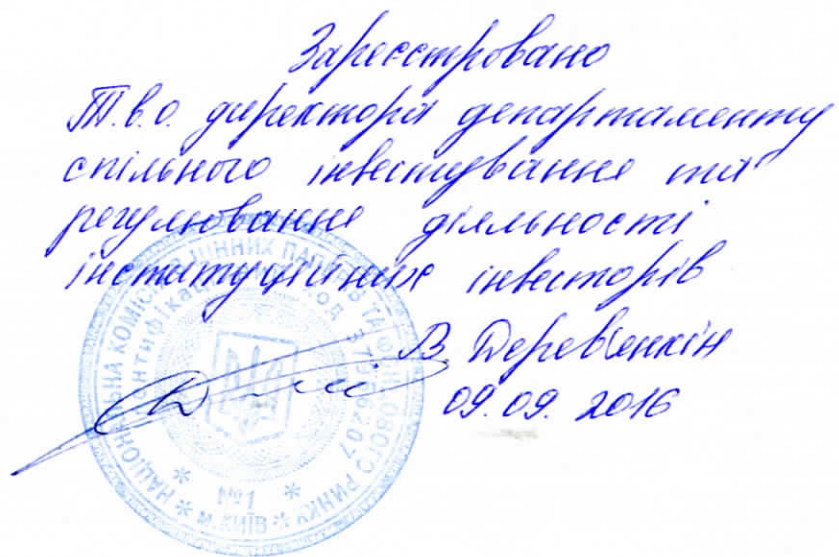 Зареєстровано
Т.в.о. директора департаменту
спільного інвестування та
регулювання діяльності
інституційних інвесторів
В. Дерев'янкін
09.09. 2016
НАЦІОНАЛЬНА КОМІСІЯ З ЦІННИХ ПАПЕРІВ ТА ФОНДОВОГО РИНКУ
Ідентифікаційний код 37956207
№1
* М. КИЇВ *